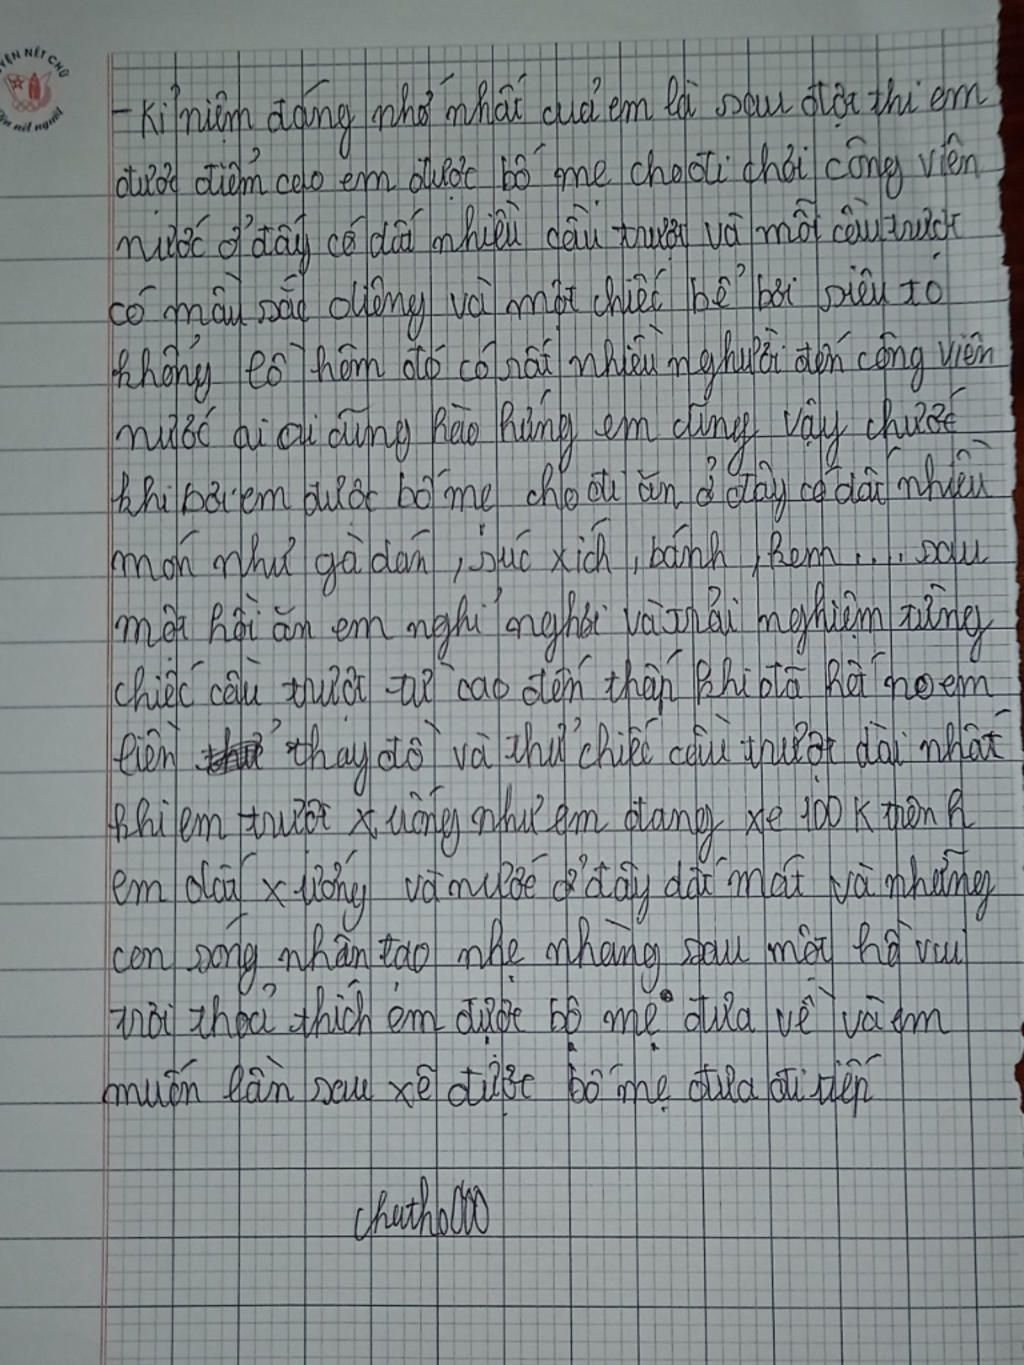 LUYỆN NÉT CHỮ
rèn nết người
- Kỉ niệm đáng nhớ nhất của em là sau đợt thi em
được điểm cao em được bố mẹ cho đi chơi công viên
nước ở đây có dất nhiều cầu trượt và mỗi cầu trượt
có mầu sắc diêng và một chiếc bể bơi siêu to
khổng lồ hôm đó có rất nhiều nghười đến công viên
nước ai ai cũng hào hứng em cũng vậy chước
khi bơi em được bố mẹ cho đi ăn ở đây có dất nhiều
món như gà dán , súc xích , bánh , kem .... sau
một hồi ăn em nghỉ nghơi và trải nghiệm từng
chiếc cầu trượt từ cao đến thấp khi đã hết no em
liền thay đồ và thử chiếc cầu trượt dài nhất
khi em trượt xuống như em đang xe 100 K trên h
em dất xướng và nước ở đây dất mát và nhưỡng
con sóng nhân tạo nhẹ nhàng sau một hồ vui
trơi thoả thích em được bố mẹ đưa về và em
muốn lần sau xẽ được bố mẹ đưa đi tiếp